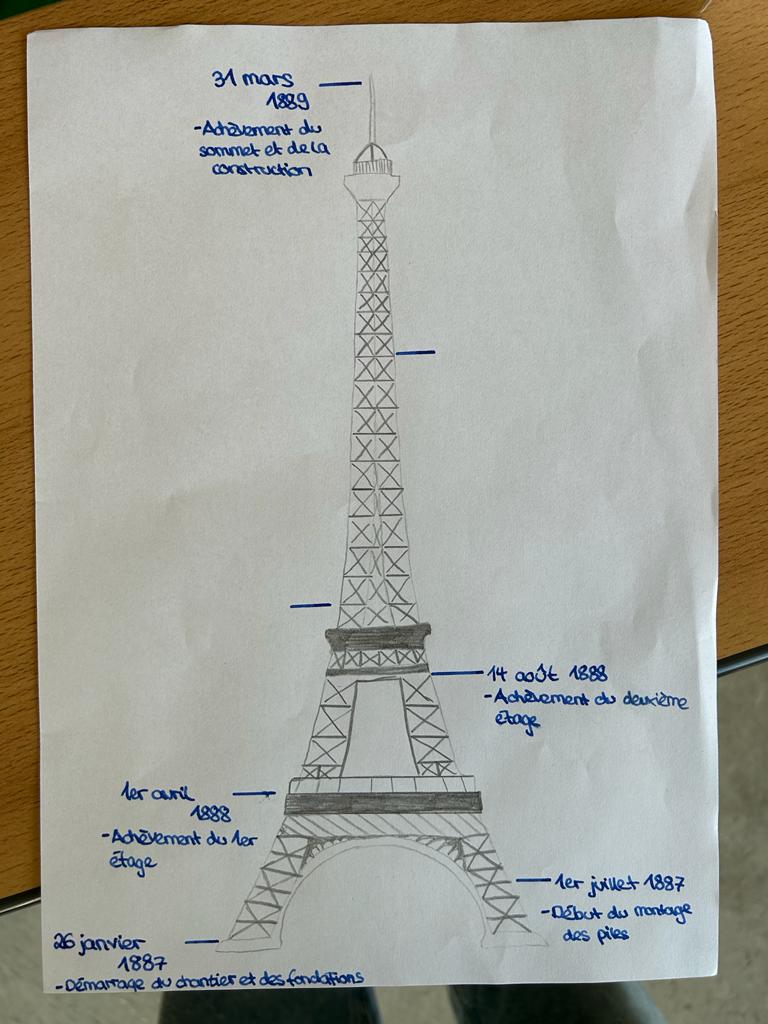 31 mars
1889
-Achèvement du
sommet et de la
construction
14 août 1888
-Achèvement du deuxième
étage
1er avril
1888
-Achèvement du 1er
étage
1er juillet 1887
-Début du montage
des piles
26 janvier
1887
-Démarrage du chantier et des fondations